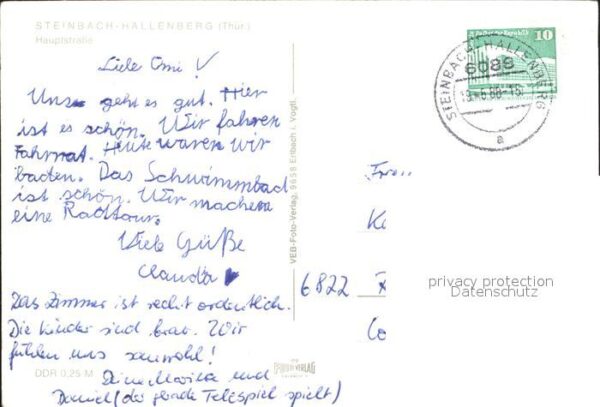 STEINBACH-HALLENBERG (Thür.)
Hauptstraße
Liebe Omi!
Uns geht es gut. Hier
ist es schön. Wir fahren
Fahrrat. Heute waren wir
baden. Das Schwimmbad
ist schön. Wir machen
eine Radtour.
Viele Güße
Claudia
Das Zimmer ist recht ordentlich.
Die Kinder sind brav. Wir
fühlen uns sauwohl!
Deine Marika und
Daniel (der gerade Telespiel spielt)
DDR 0,25 M
VEB-Foto-Verlag, 9658 Erlbach i. Vogtl.
10
STEINBACH-HALLENBERG
6088
a
6822
privacy protection
Datenschutz